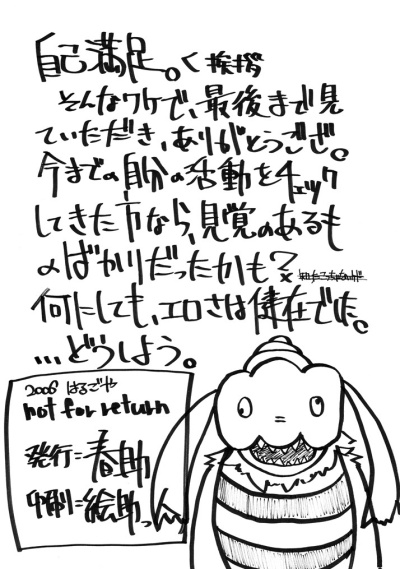 自己満足。く挨拶
そんなワケで、最後まで見
ていただき、ありがとうござ。
今までの自分の活動をチェック
してきた方なら、見覚のあるも
のばかりだったかも?
何にしても、エロさは健在でした。
...どうしよう。
2006 はるごや
not for return
発行=春助
印刷=絵助っ人